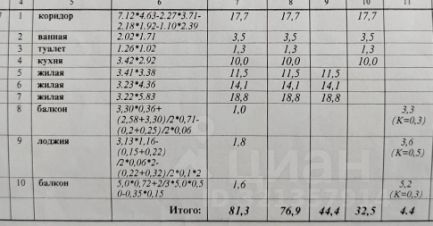 4 5 6 7 8 9 10 11
1 коридор 7.12*4.63-2.27*3.71- 17,7 17,7 17,7
2.18*1.92-1.10*2.39
2 ванная 2.02*1.71 3,5 3,5 3,5
3 туалет 1.26*1.02 1,3 1,3 1,3
4 кухня 3.42*2.92 10,0 10,0 10,0
5 жилая 3.41*3.38 11,5 11,5 11,5
6 жилая 3.23*4.36 14,1 14,1 14,1
7 жилая 3.22*5.83 18,8 18,8 18,8
8 балкон 3,30*0,36+ 1,0 3,3
(2,58+3,30)/2*0,71- (К=0,3)
(0,2+0,25)/2*0,06
9 лоджия 3,13*1,16- 1,8 3,6
(0,15+0,22) (К=0,5)
/2*0,06*2-
(0,22+0,32)/2*0,1*2
10 балкон 5,0*0,72+2/3*5.0*0,5 1,6 5,2
0-0,35*0,15 (К=0,3)
Итого: 81,3 76,9 44,4 32,5 4.4